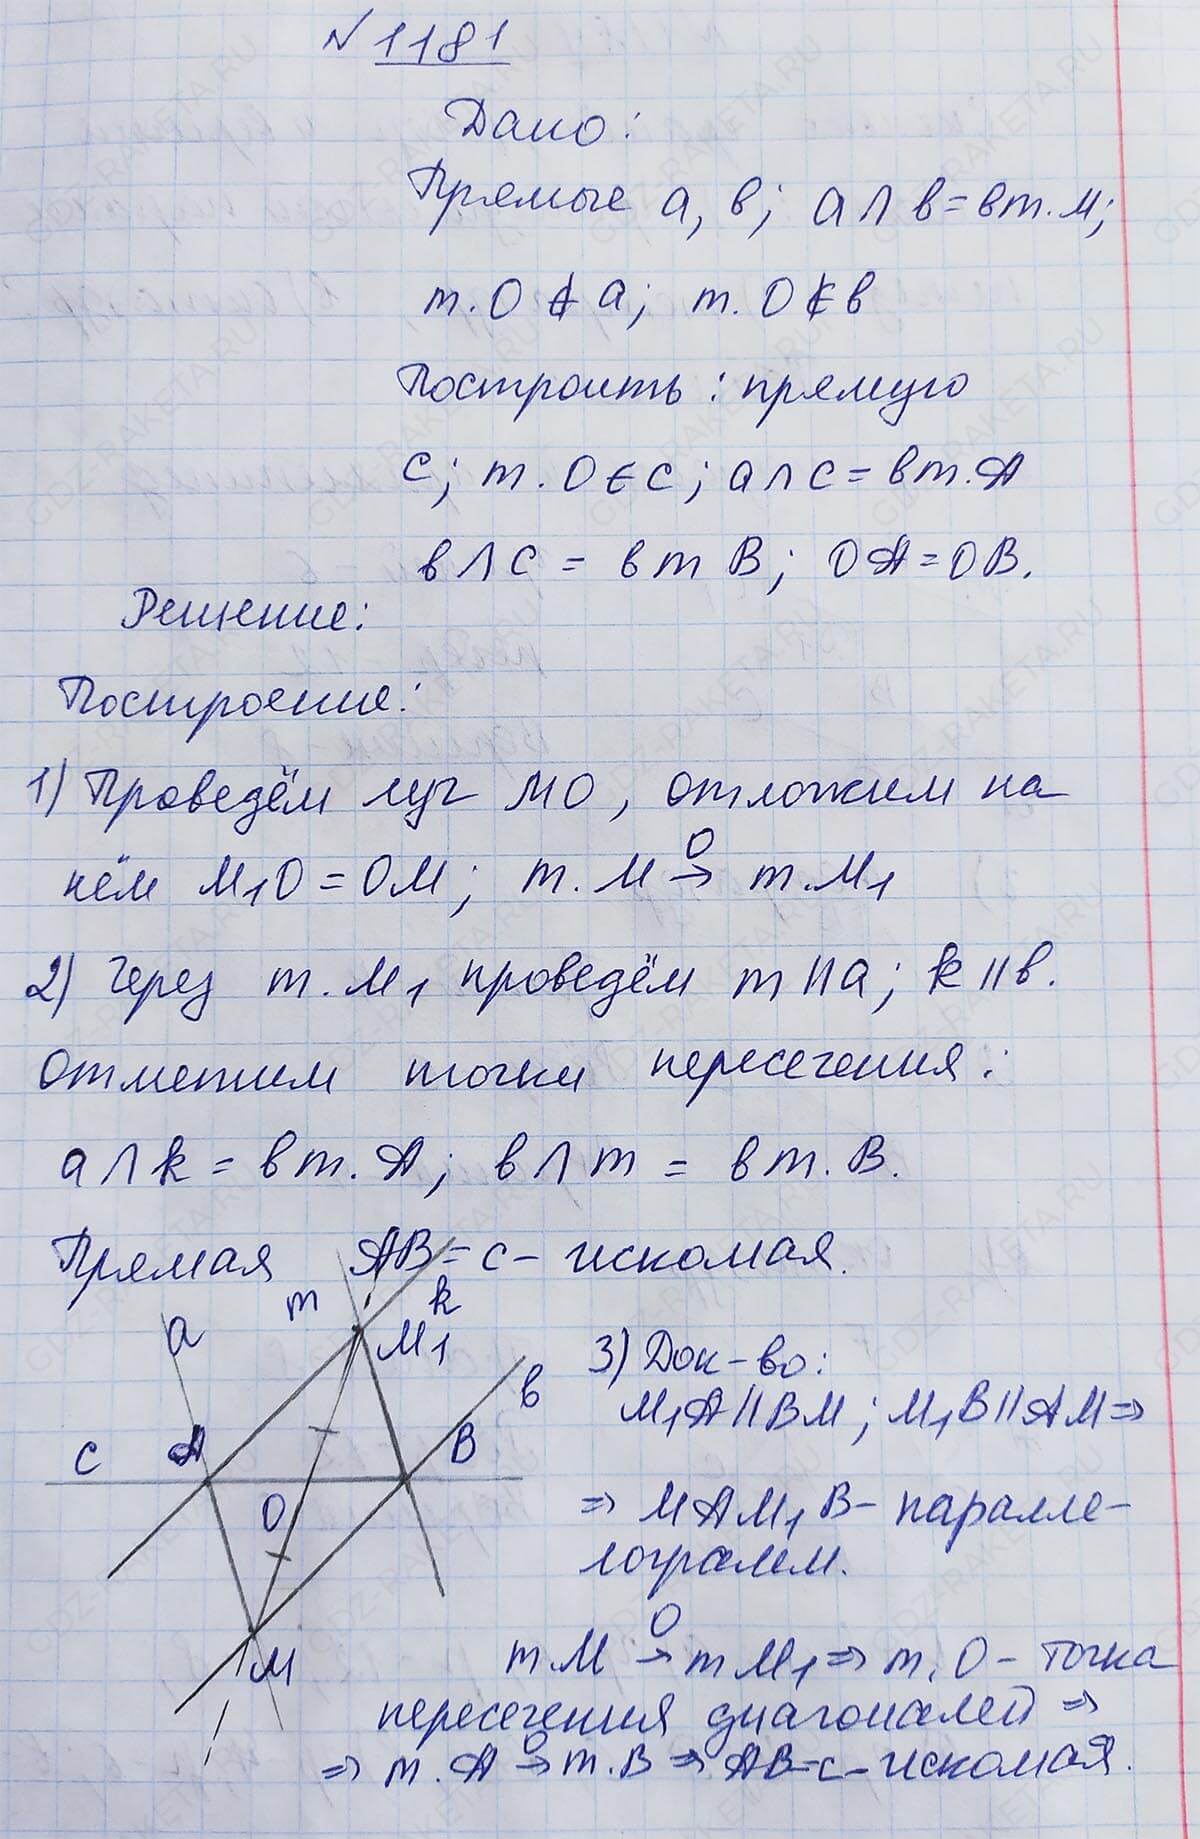 № 1181
Дано:
Прямые a, в; a ∩ в = в т. М;
т. О ∉ a; т. О ∉ в
Построить: прямую
с; т. О ∈ с; a ∩ с = в т. А
в ∩ с = в т В; ОА = ОВ.
Решение:
Построение:
1) Проведём луч МО, отложим на
нём М₁О = ОМ; т. М →ᴼ т. М₁
2) Через т. М₁ проведём m || a; k || в.
Отметим точки пересечения:
a ∩ k = в т. А; в ∩ m = в т. В.
Прямая АВ = с - искомая.
m
k
a
М₁
в
А
В
с
О
М
3) Док-во:
М₁А || ВМ; М₁В || АМ ⇒
⇒ МАМ₁В - паралле-
лограмм.
т М →ᴼ т М₁ ⇒ т. О - точка
пересечения диагоналей ⇒
⇒ т. А →ᴼ т. В ⇒ АВ = с - искомая.
GDZ-RAKETA.RU